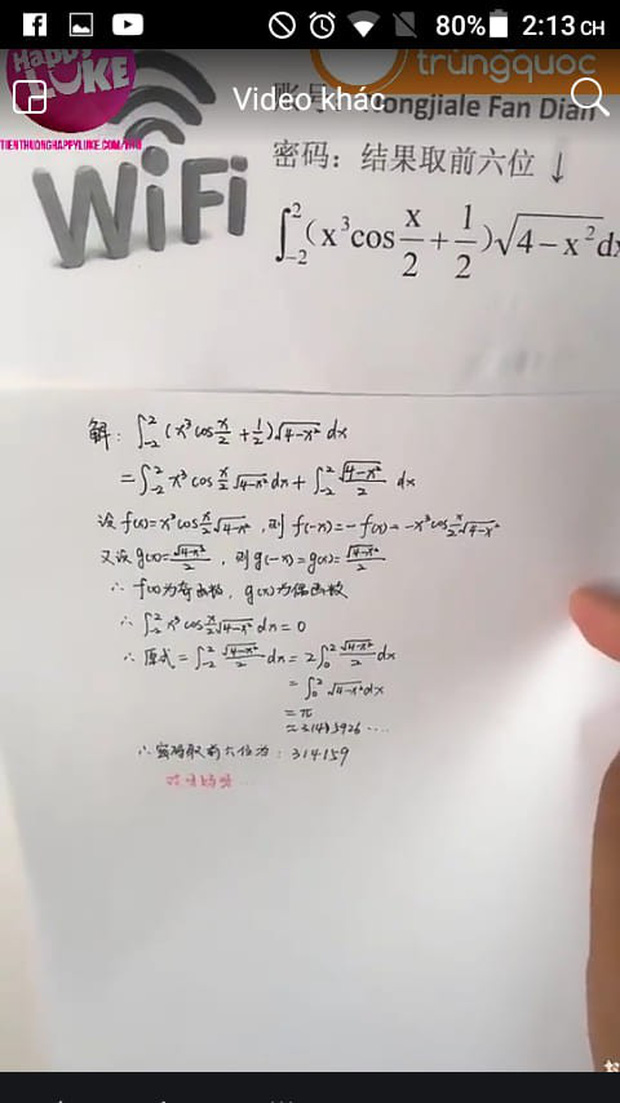 80% 2:13 CH
Happy
LUKE
trungquoc
Video khác
TIENTHUONGHAPPYLUKE.COM
账号: Hongjiale Fan Dian
密码: 结果取前六位 ↓
WiFi
∫₋₂² (x³cos x/2 + 1/2)√(4−x²)dx
解: ∫₋₂² (x³cos x/2 + 1/2)√(4−x²) dx
=∫₋₂² x³cos x/2 √(4−x²) dx + ∫₋₂² √(4−x²)/2 dx
设 f(x)=x³cos x/2 √(4−x²), 则 f(−x)=−f(x)=−x³cos x/2 √(4−x²)
又设 g(x)=√(4−x²)/2, 则 g(−x)=g(x)=√(4−x²)/2
∴ f(x)为奇函数, g(x)为偶函数
∴ ∫₋₂² x³cos x/2 √(4−x²) dx=0
∴ 原式=∫₋₂² √(4−x²)/2 dx=2∫₀² √(4−x²)/2 dx
=∫₀² √(4−x²)dx
=π
∴密码取前六位为: 314159